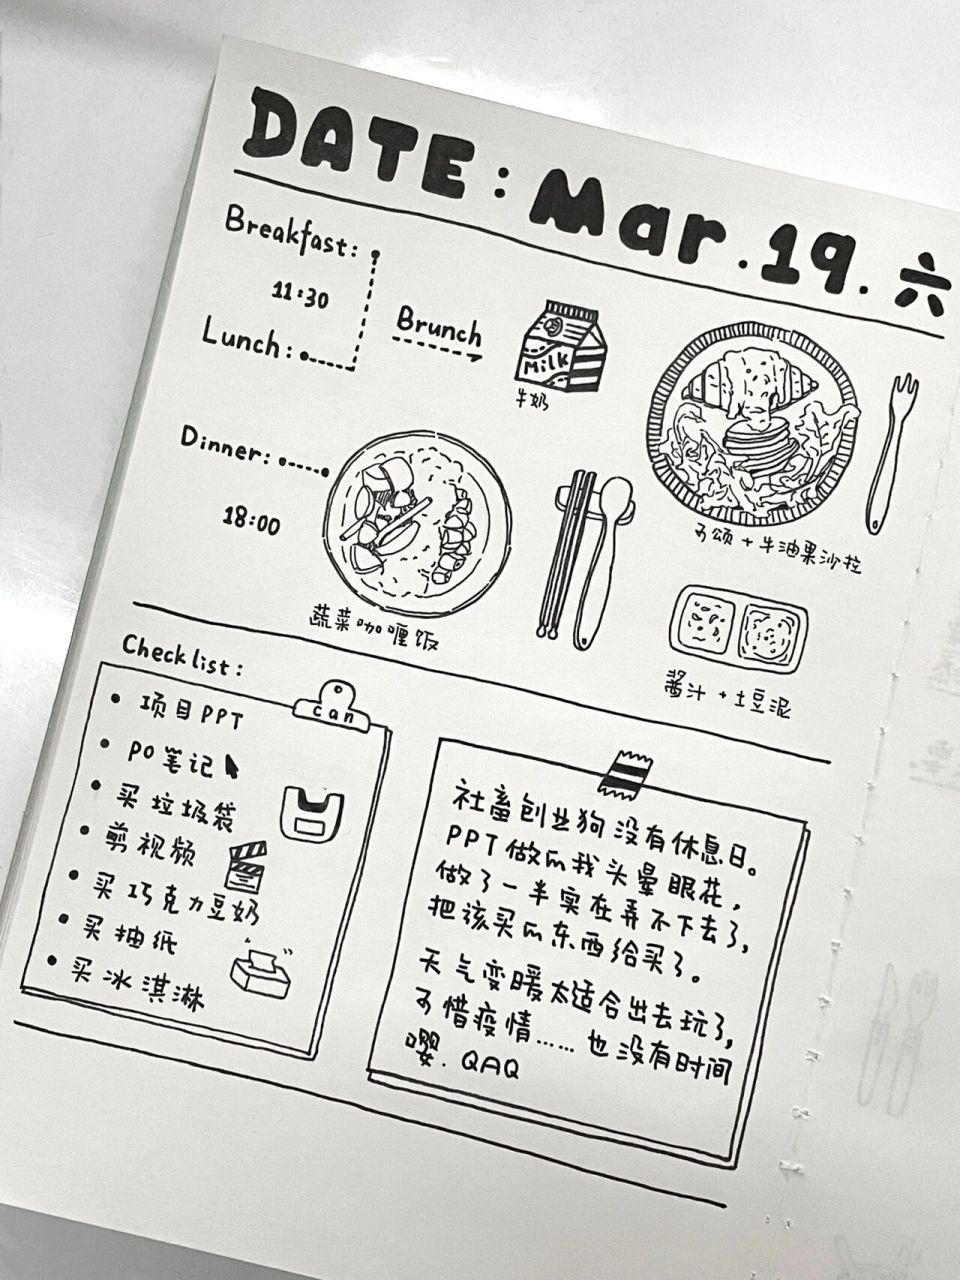 DATE: Mar.19.六
Breakfast:
11:30
Lunch:
Brunch
Milk
牛奶
可颂+牛油果沙拉
Dinner:
18:00
蔬菜咖喱饭
酱汁+土豆泥
Checklist:
can
项目PPT
PO笔记
买垃圾袋
剪视频
买巧克力豆奶
买抽纸
买冰淇淋
社畜创业狗没有休息日。
PPT做的我头晕眼花,
做了一半实在弄不下去了,
把该买的东西给买了。
天气变暖太适合出去玩了,
可惜疫情……也没有时间
嘤.QAQ